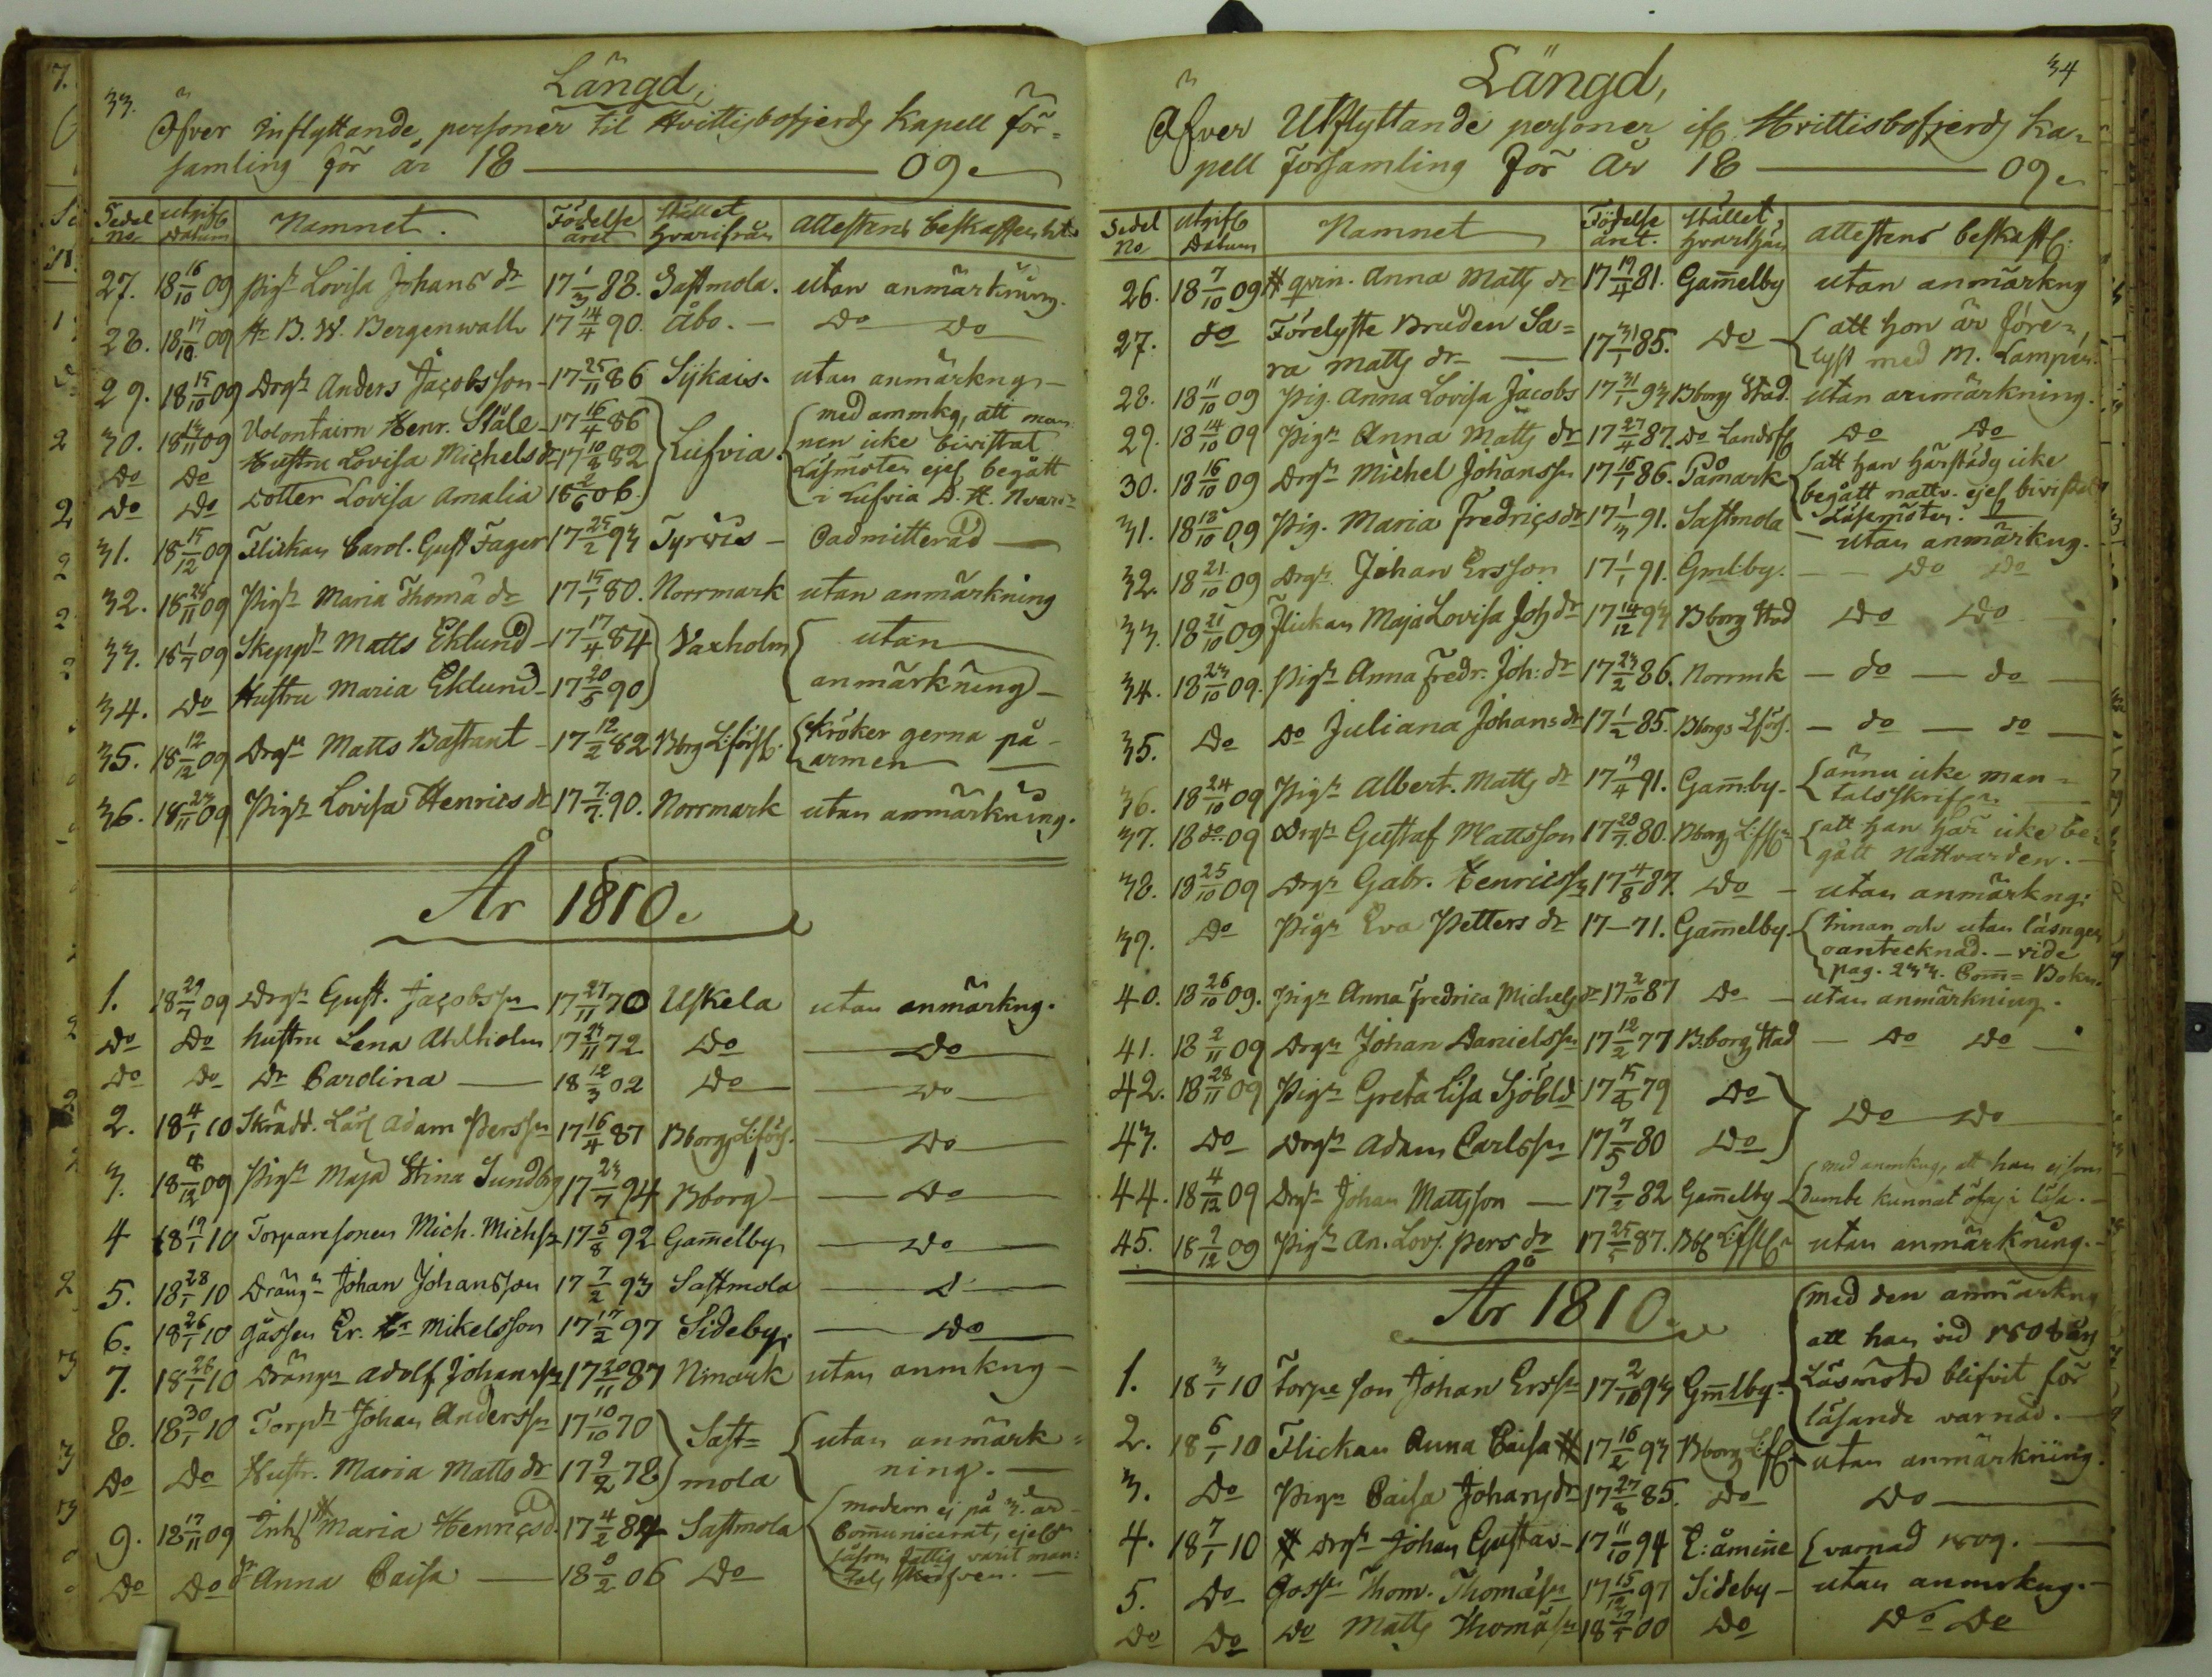 33.
Längd,
Öfver Inflyttande personer til Hvittisbofjerds Kapell för=
samling för år 18 — 09.
Sedel No | utgifs Datum | Namnet. | Födelse året | Stället hvarifrån | Attestens beskaffenhet
27. 18 16/10 09 Pign Lovisa Johans dr 17 1/3 88. Sastmola. utan anmärkning.
28. 18 17/10 09 H. B. W. Bergenwall 17 14/4 90. Åbo. — Do Do
29. 18 15/10 09 Drgn Anders Jacobsson 17 25/11 86 Sijkais. utan anmärkng —
30. 18 13/11 09 Volontairn Henr. Ståle 17 16/4 86 Lufvia. med anmkg, att man=
Do Do Hustru Lovisa Michelsdr 17 10/8 82 nen icke bivistat Läsmöten ejel. begått
Do Do Dotter Lovisa Amalia 18 2/6 06. i Lufvia D. H. Nvard
31. 18 15/12 09 Flickan Carol. Gust Fager 17 25/2 93 Tyrvis — Oadmitterad —
32. 18 28/11 09 Pign Maria Thomä dr 17 15/1 80. Norrmark utan anmärkning
33. 18 1/7 09 Skeppn Matts Eklund 17 17/4 84 Vaxholm utan
34. Do Hustru Maria Eklund 17 20/5 90 anmärkning —
35. 18 12/12 09 Drgn Matts Bastant 17 12/2 82 Bbrg L:förs. kröker gerna på
armen
36. 18 23/11 09 Pign Lovisa Henrics dr 17 7/7 90. Norrmark utan anmärkning.
År 1810.
1. 18 29/7 09 Drgn Gust. Jacobssn 17 27/11 70 Uskela utan anmärkng.
Do Do hustru Lena Ahlholm 17 23/11 72 Do Do
Do Do Dr Carolina — 18 12/3 02 Do Do
2. 18 4/1 10 Skrädd. Lärl Adam Perssn 17 16/4 87 Bborg L:förs. Do
3. 18 8/12 09 Pign Maja Stina Sundbg 17 23/7 94 Bborg — Do
4 18 19/1 10 Torparesonen Mich. Michssn 17 5/8 92 Gam̄elby Do
5. 18 28/1 10 Drängn Johan Johansson 17 7/2 93 Sastmola
6. 18 26/1 10 gåssen Er. Mikelsson 17 17/2 97 Sideby. Do
7. 18 28/1 10 Drängn Adolf Johanssn 17 20/11 87 Nmark utan anmkng —
8. 18 30/1 10 Torpn Johan Anderssn 17 10/10 70 Sast= utan anmärk=
Do Do Hustr. Maria Matts dr 17 9/2 78 mola ning. —
9. 18 17/11 09 Inhs Maria Henricsd. 17 4/2 84 Sastmola modern ej på 3. år
Com̄unicerat, ejeller
såsom fattig varit man=
Do Do dr Anna Caisa — 18 8/2 06 Do tals skrifven. —
34
Längd,
Öfver Utflyttande personer ifr. Hvittisbofjerds Ka=
pell Församling för År 18 — 09.
Sedel No | Utgifs Datum | Namnet | Födelse året. | Stället, hvarthän | attestens beskaff:
26. 18 7/10 09 qvin. Anna Matts dr 17 19/4 81. Gam̄elby utan anmärkng
27. do Förelyste Bruden Sa= 17 31/1 85. Do att hon är före=
ra Matts dr — lyst med M. Lampén.
28. 18 11/10 09 Pig. Anna Lovisa Jacobs 17 31/1 93 Bborg Stad. utan anmärkning.
29. 18 14/10 09 Pign Anna Matts dr 17 27/4 87. Do Landsf. Do Do
30. 18 16/10 09 Drgn Michel Johanssn 17 16/1 86. Påmark att han härstädes icke
begått nattv. ejel. bivistat
Läsmöten. —
31. 18 18/10 09 Pig. Maria Fredricsdr 17 1/3 91. Sastmola — utan anmärkng.
32. 18 21/10 09 Drgn Johan Ersson 17 1/1 91. Gmlby. — Do Do
33. 18 21/10 09 Flickan Maja Lovisa Johs dr 17 14/12 93 Bborg Stad Do Do
34. 18 23/10 09. Pign Anna Fredr. Joh: dr 17 23/2 86. Norrmk — do — do —
35. Do Do Juliana Johans dr 17 1/2 85. Bborgs Lförs. — do — do —
36. 18 24/10 09 Pign Albert. Matts dr 17 19/4 91. Gam̄by. ännu icke man=
talsskrifn.
37. 18 do 09 Drgn Gustaf Mattsson 17 28/7 80. Bborg L:f att han här icke be=
gått Nattvarden. —
38. 18 25/10 09 Drgn Gabr. Henricssn 17 4/8 87. Do — utan anmärkng.
39. Do Pign Eva Petters dr 17—71. Gam̄elby. Innan och utan läsngen
oantecknad. — vide
pag. 233. Com̄= Boken
40. 18 26/10 09. Pign Anna Fredrica Michels dr 17 2/10 87 Do — utan anmärkning.
41. 18 2/11 09 Drgn Johan Danielssn 17 12/2 77 B:borg Stad — Do Do —
42. 18 28/11 09 Pign Greta Lisa Sjöbld 17 15/8 79 Do
Do Do
43. Do Drgn Adam Carlssn 17 7/5 80 Do
44. 18 4/12 09 Drgn Johan Mattsson — 17 9/2 82 Gam̄elby med anmkng, att han ej som
dumbe kunnat öfvas i läsn. —
45. 18 9/12 09 Pign An. Lovs. Pers dr 17 25/1 87. utan anmärkning. —
År 1810.
med den anmärkng
att han vid 1808 års
1. 18 3/1 10 Torpe son Johan Erssn 17 2/10 93 Gm̄lby. Läsmöte blifvit för
läsande varnad. —
2. 18 6/1 10 Flickan Anna Caisa 17 16/2 93 Bborg L:f utan anmärkning.
3. Do Pign Caisa Johans dr 17 27/8 85. Do Do —
4. 18 7/1 10 Drgn Johan Gustav 17 11/10 94 E:åmin̄e varnad 1809. —
5. Do Gossn Thom. Thomässn 17 15/12 97 Sideby — utan anmrkng. —
Do Do Do Matts Thomässn 18 17/1 00 Do Do Do